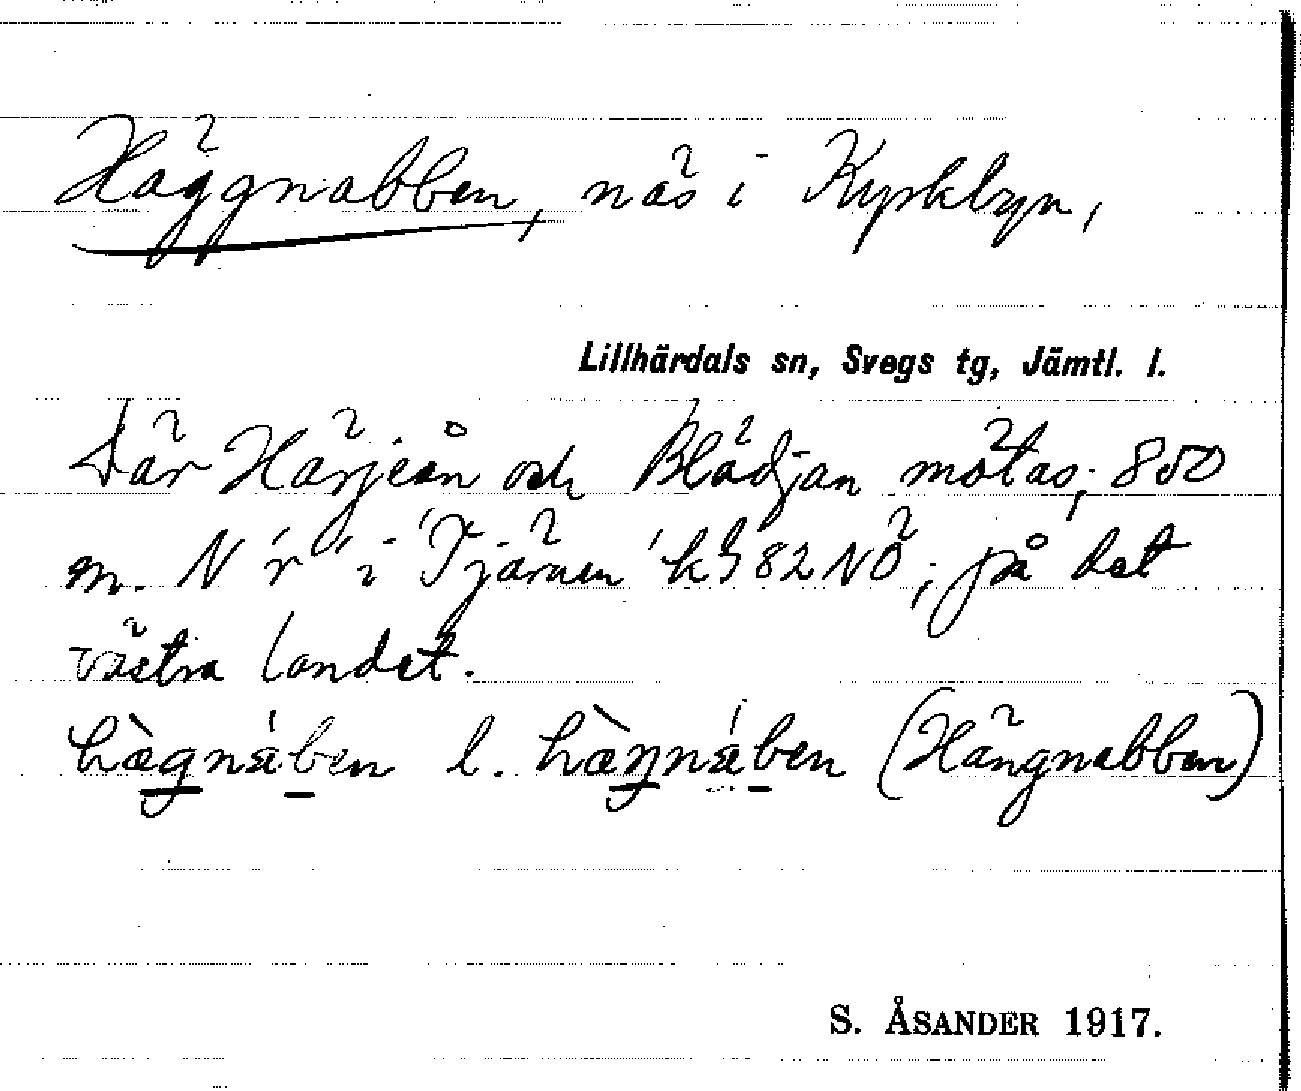 Häggnabben, näs i Kyrkbyn,
Lillhärdals sn, Svegs tg, Jämtl. l.
Där Härjeån och Blädjan mötas; 800
m. N 'r' i 'Tjärnen' kbl 82 NÖ; på det
västra landet.
hægnaben l. hæŋnaben (Hängnabben)
S. ÅSANDER 1917.